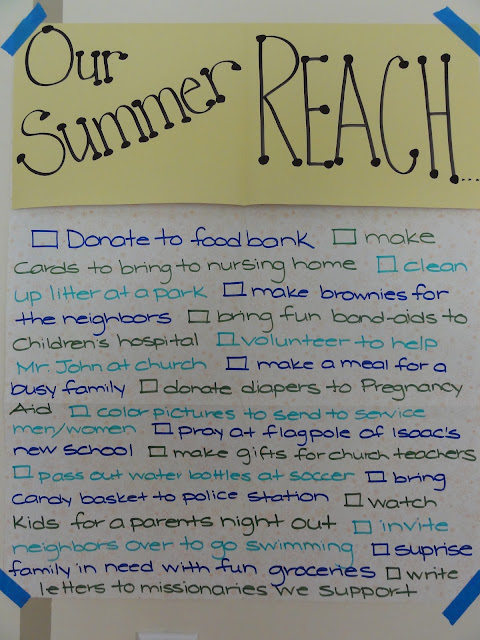 Our
Summer
REACH...
Donate to food bank make
cards to bring to nursing home clean
up litter at a park make brownies for
the neighbors bring fun band-aids to
Children's hospital volunteer to help
Mr. John at church make a meal for a
busy family donate diapers to Pregnancy
Aid color pictures to send to service
men/women pray at flagpole of Isaac's
new school make gifts for church teachers
pass out water bottles at soccer bring
candy basket to police station watch
kids for a parents night out invite
neighbors over to go swimming suprise
family in need with fun groceries write
letters to missionaries we support